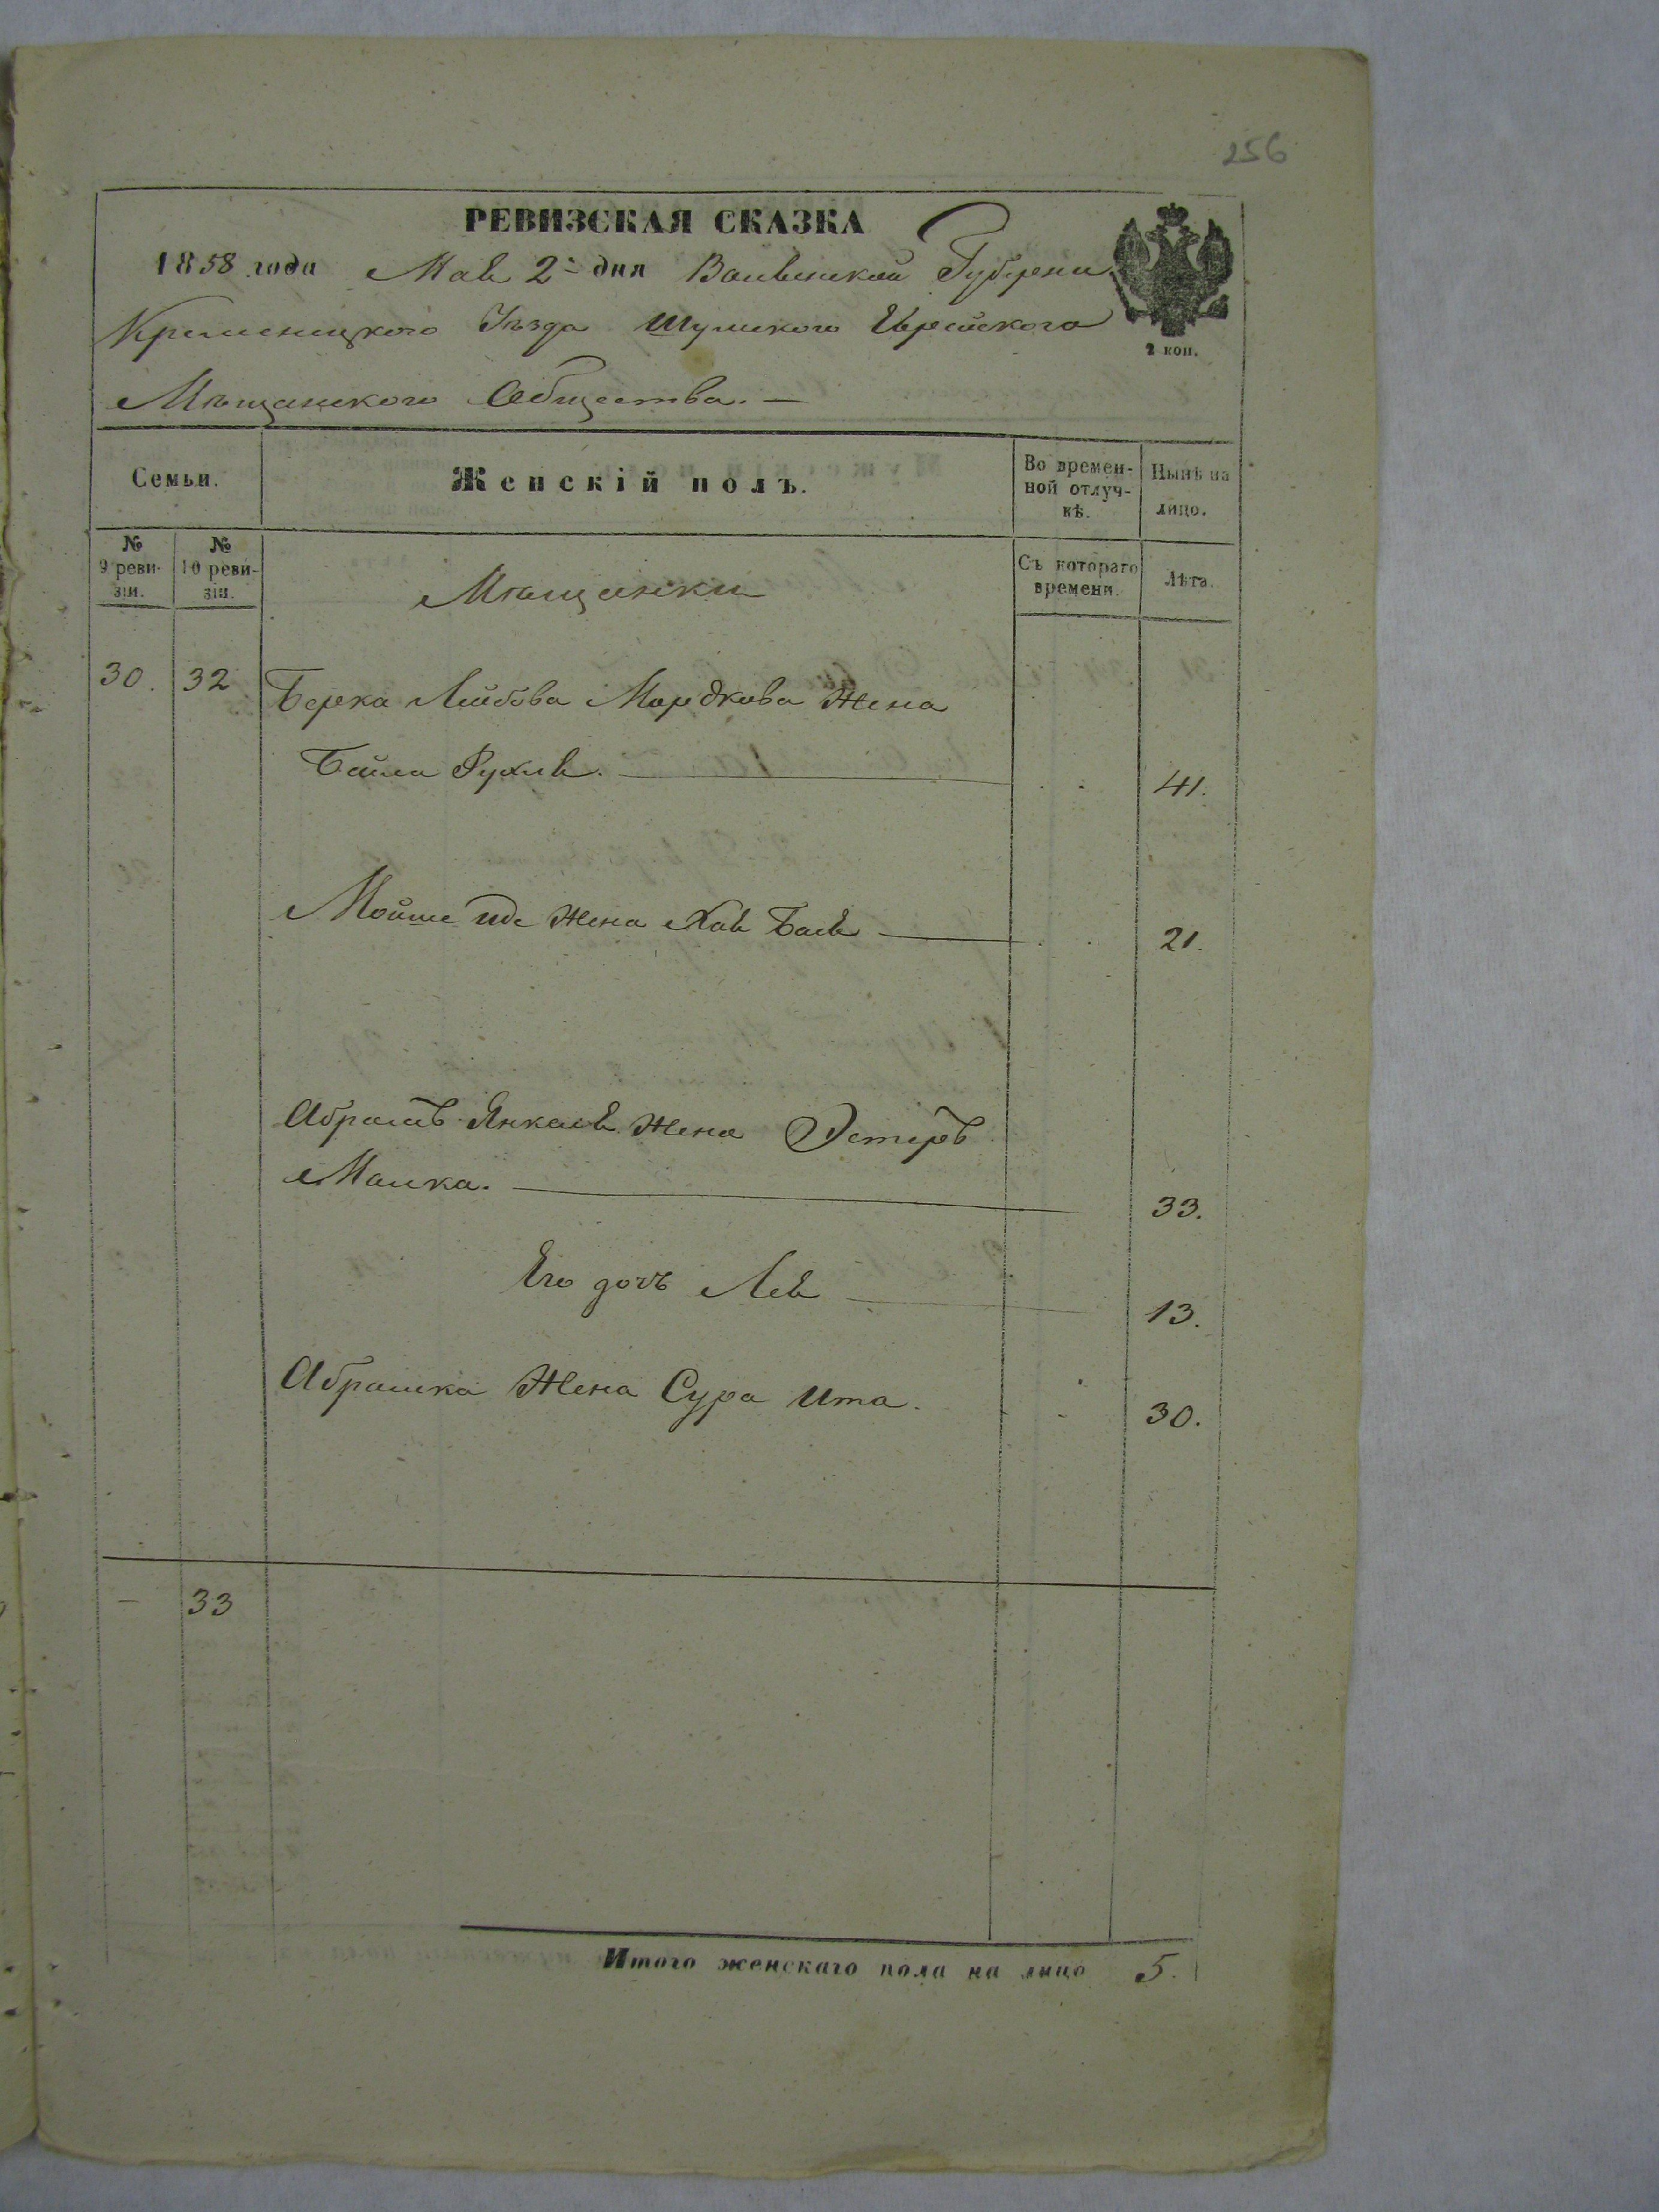 256
РЕВИЗСКАЯ СКАЗКА
1858 года Мая 2го дня Волынской Губерни
Кременецкого Уѣзда Шумского Еврейского
2 коп.
Мѣщанского Общества. —
Семьи.
Женскій полъ.
Во времен-
ной отлуч-
кѣ.
Нынѣ на
лицо.
№
9 реви-
зіи.
№
10 реви-
зіи.
Мѣщанки
Съ котораго
времени.
Лѣта.
30. 32 Берка Лейбова Мордкова Жена
Бейла Рухля. 41.
Мойше Жена Хая Бася 21.
Абрамъ Янкеля Жена Эстеръ
Малка. 33.
Его дочь Лея 13.
Абрамка Жена Сура Ита. 30.
— 33
Итого женскаго пола на лицо 5.